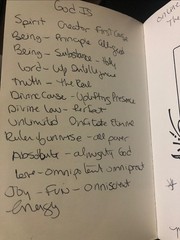 God IS
Spirit Creator First Cause
Being - Principle
Being - Substance - Holy
Word
Truth - the Real
Divine Cause - Uplifting Presence
Divine Law - Perfect
Unlimited
Ruler of universe - all power
Absolute - almighty God
Love - omnipotent omniprsent
Joy - FUN - omniscient
energy
The